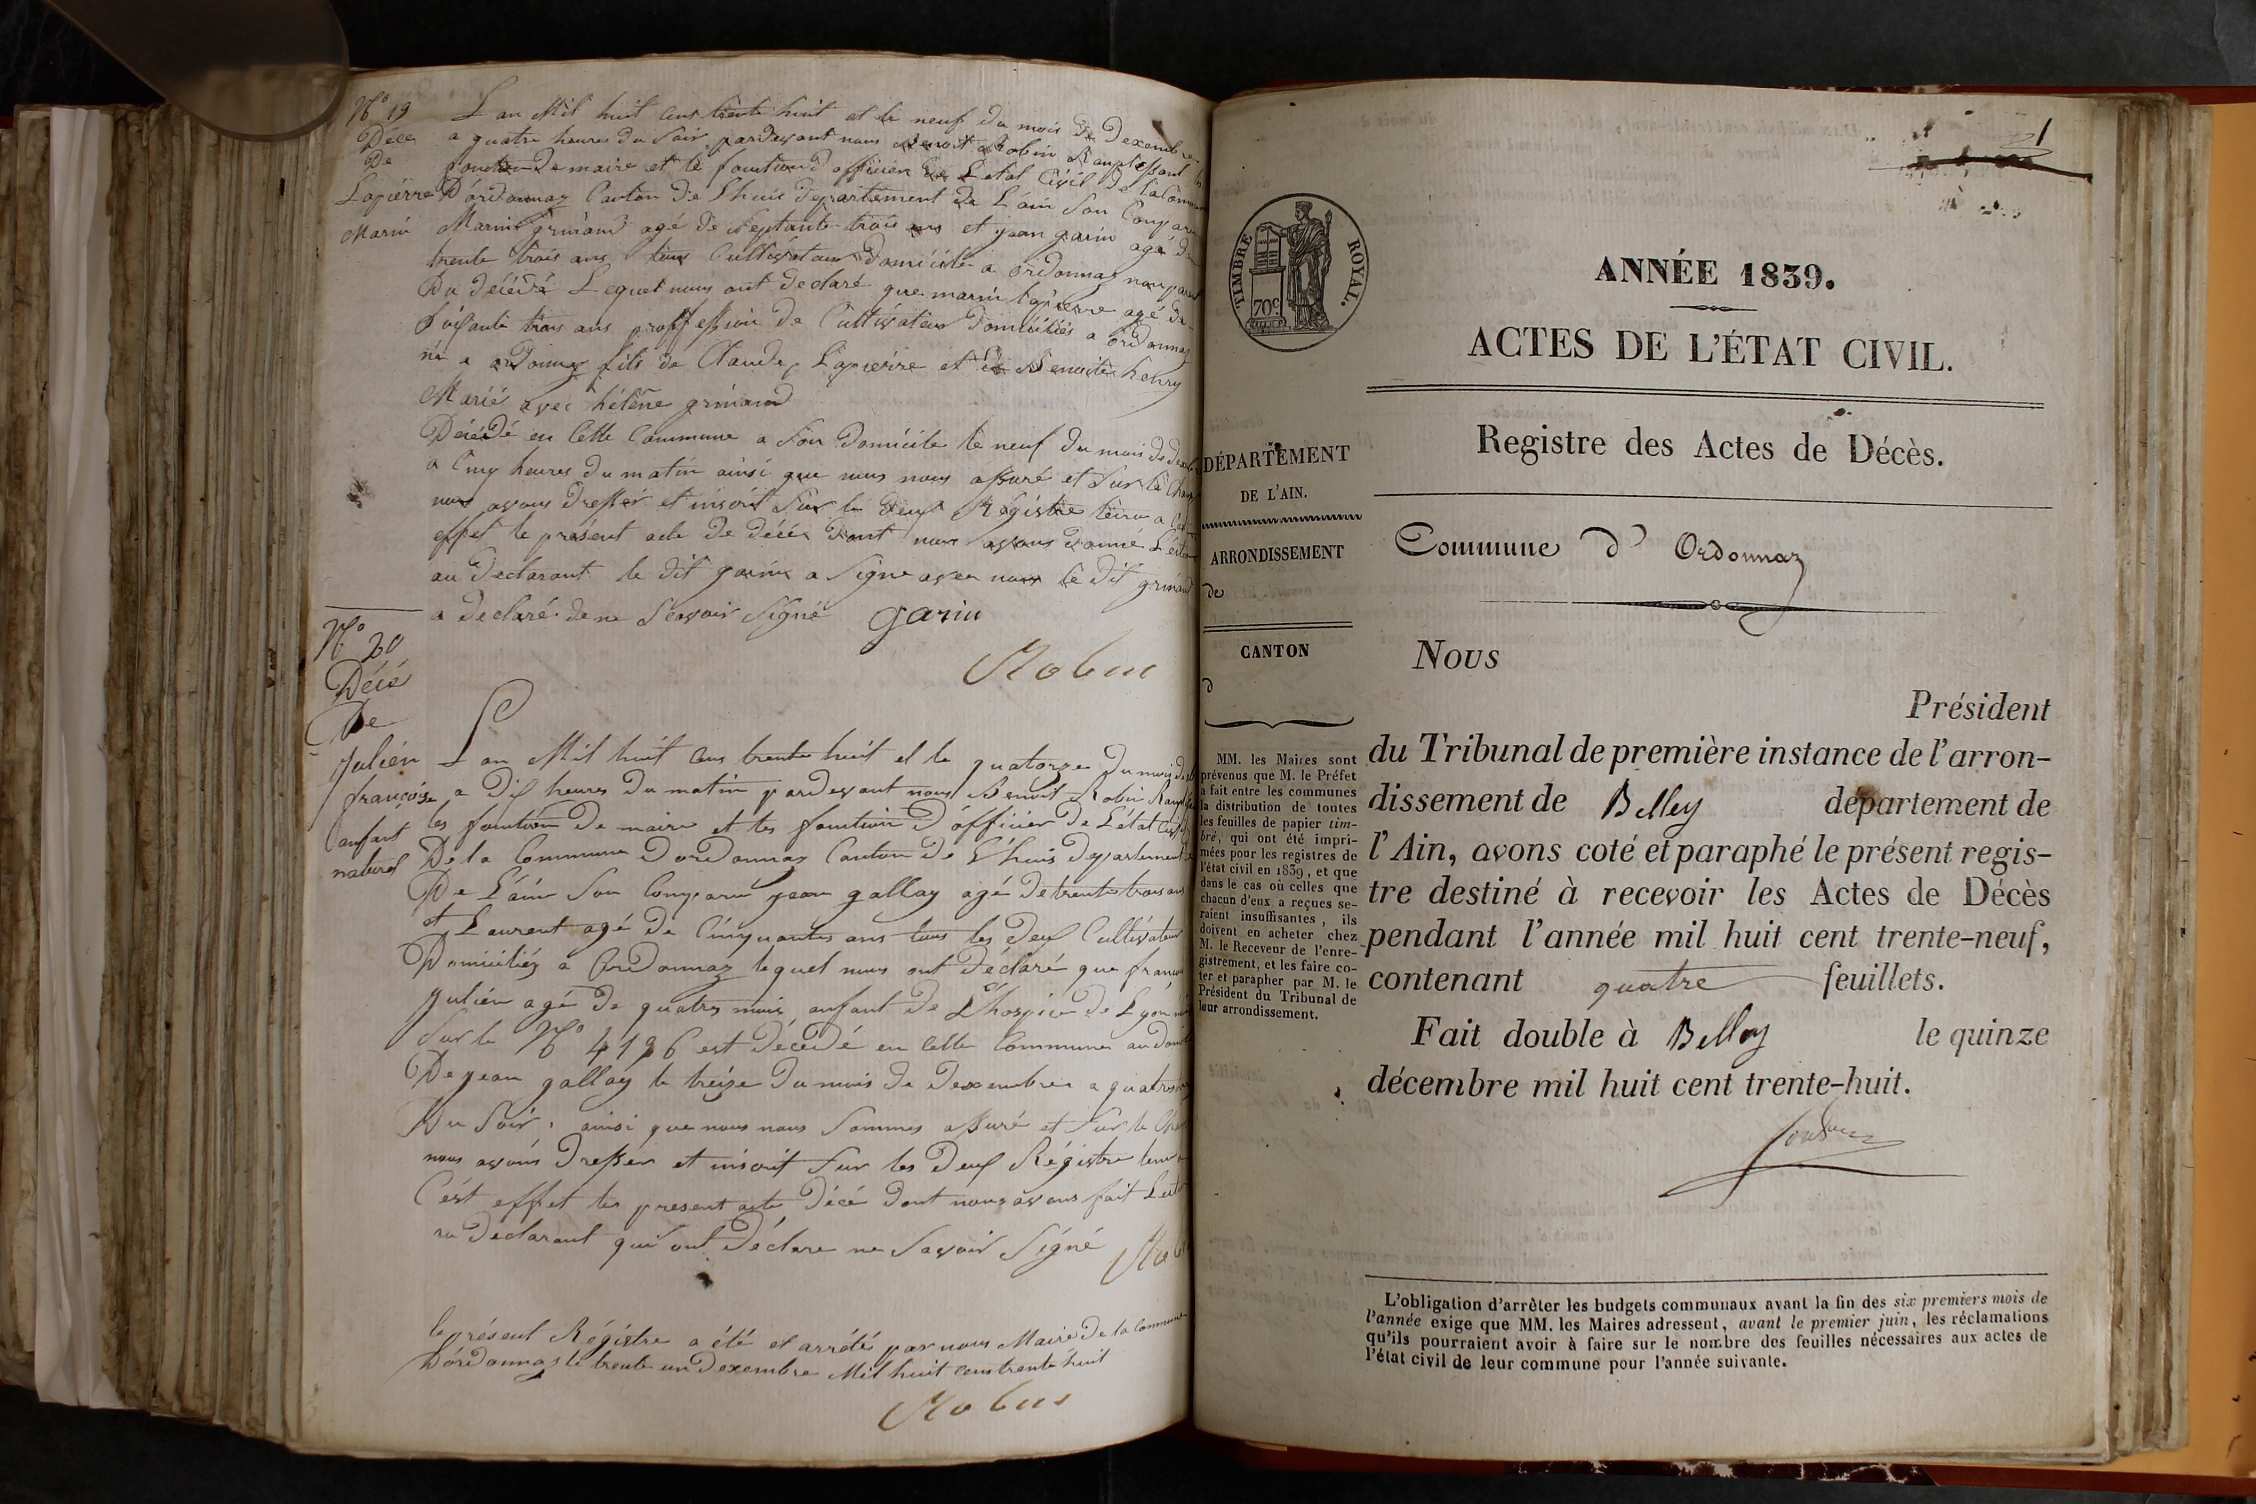 N° 19
Décé
De
Lapierre
Marin
L'an Mil huit cens trente huit et le neuf du mois de Dexembre
a quatre heures du Soir pardevant nous Benoit Robin Ramplissant les
fonction De maire et le fonction d'officier de L'etat Civil De la Commune
D'ordonnaz Canton De Lhuis departement de L'ain Son Comparu
Marin grinand agé De Septante trois ans et jean garin agé De
trente trois ans tous Cultivateur Domicilié a ordonnaz non parent
Du décédé Lequel nous ont declaré que marin Lapierre agé de
Soisante trois ans proffession De Cultivateur Domiciliés a ordonnaz
né a ordonnaz fils de Claude Lapierre et de Benoite henry
Marié avec héléne grinand
Décédé en Cette Commune a Son Domicile le neuf du mois de dexembre
a Cinq heures du matin ainsi que nous nous assuré et Sur le Champ
nous avons Dresser et inscrit Sur les deux Régistre tenu a Cet
effet le présent acte De décés Dont nous avons donné Lecture
au Declarant le dit garin a Signé avec nous le dit grinand
a declaré de ne Scavoir Signé garin
Robin
N° 20
Décé
De
Julién
françois
enfant
naturel
L'an Mil huit cens trente huit et le quatorze Du mois de
a Dix heures Du matin pardevant nous Benoit Robin
les fonction De maire et les fonction D'officier De L'état Civil
De la Commune D'ordonnaz Canton De L'huis Departement
De L'ain Son Comparu jean gallay agé de trente trois ans
et Laurent agé De Cinquantes ans tous les deux Cultivateur
Domiciliéz a Ordonnaz lequel nous ont déclaré que françois
Julién agé De quatres mois enfant de L'hospice de Lyon
Sur le N° 4196 est décédé en Cette Commune au
De jean gallay le treize Du mois de Dexembre a quatre
Du Soir, ainsi que nous nous Sommes assuré et Sur le Champ
nous avons Dresser et inscrit Sur les Deux Régistre tenu a
C'ést effet les present acte Décé Dont nous avons fait Lecture
au Déclarant qui ont Déclare ne Savoir Signé Robin
le présent Régistre a été et arrété par nous Maire De la Commune
D'órdonnaz le trente un Dexembre Mil huit Cens trente huit
Robin
1
TIMBRE ROYAL.
70c
DÉPARTEMENT
DE L'AIN.
ARRONDISSEMENT
de
CANTON
d
MM. les Maires sont
prévenus que M. le Préfet
a fait entre les communes
la distribution de toutes
les feuilles de papier tim-
bré, qui ont été impri-
mées pour les registres de
l'état civil en 1839, et que
dans le cas où celles que
chacun d'eux a reçues se-
raient insuffisantes, ils
doivent en acheter chez
M. le Receveur de l'enre-
gistrement, et les faire co-
ter et parapher par M. le
Président du Tribunal de
leur arrondissement.
ANNÉE 1839.
ACTES DE L'ÉTAT CIVIL.
Registre des Actes de Décès.
Commune d' Ordonnaz
Nous
Président
du Tribunal de première instance de l'arron-
dissement de Belley département de
l'Ain, avons coté et paraphé le présent regis-
tre destiné à recevoir les Actes de Décès
pendant l'année mil huit cent trente-neuf,
contenant quatre feuillets.
Fait double à Belley le quinze
décembre mil huit cent trente-huit.
L'obligation d'arrêter les budgets communaux avant la fin des six premiers mois de
l'année exige que MM. les Maires adressent, avant le premier juin, les réclamations
qu'ils pourraient avoir à faire sur le nombre des feuilles nécessaires aux actes de
l'état civil de leur commune pour l'année suivante.